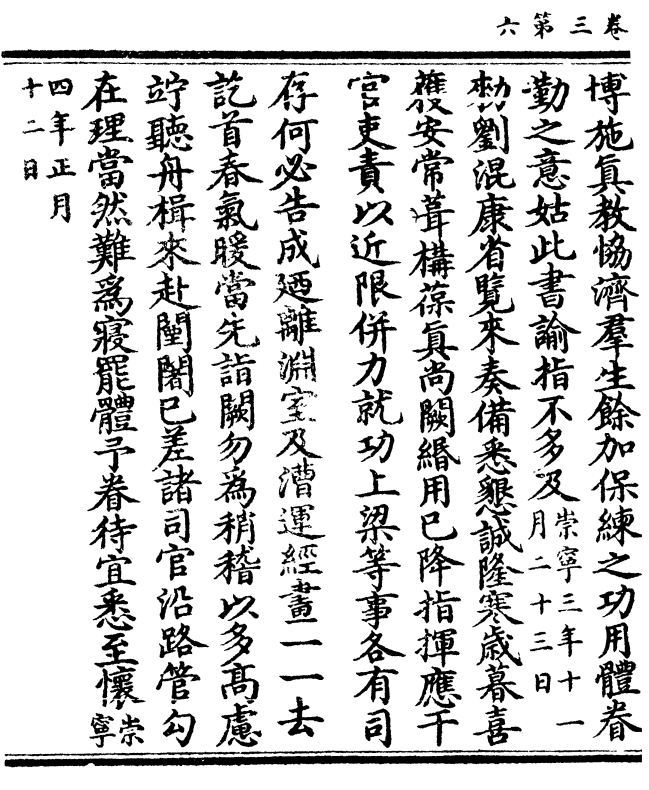 卷三第六
博施真教恊濟羣生餘加保練之功用體眷
勤之意姑此書諭指不多及崇寧三年十一月二十三日
勑劉混康省覽來奏備悉懇誠隆寒歲暮喜
獲安常葺構葆真尚闕緡用已降指揮應干
官吏責以近限併力就功上梁等事各有司
存何必告成廼離淵室及漕運經畫一一去
訖首春氣暖當先詣闕勿為稍稽以多高慮
竚聽舟楫來赴闉闍已差諸司官沿路管勾
在理當然難為寢罷體予眷待宜悉至懷崇寧
四年正月十二日